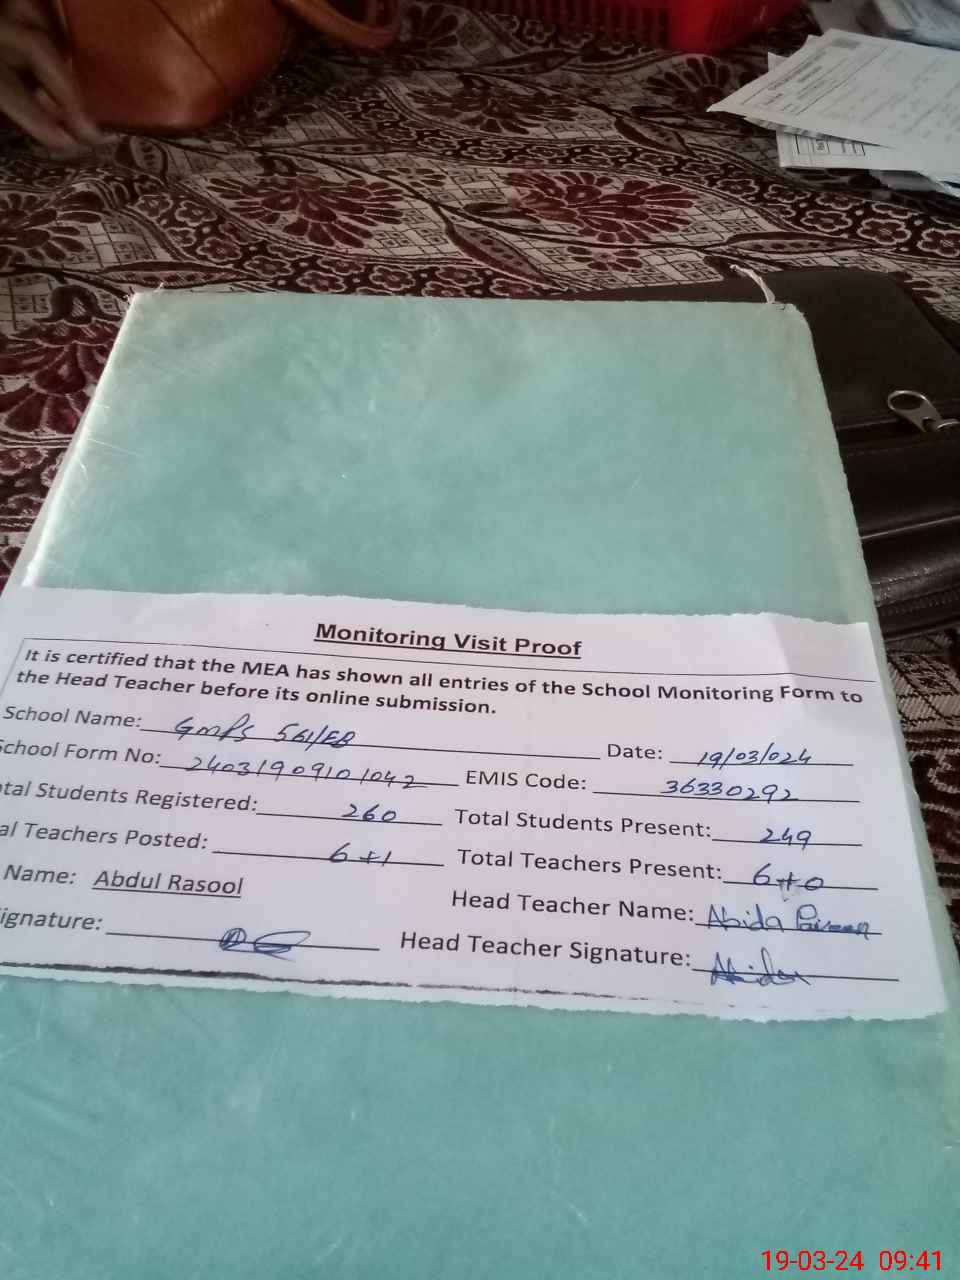 Monitoring Visit Proof
It is certified that the MEA has shown all entries of the School Monitoring Form to
the Head Teacher before its online submission.
School Name: GMPS 561/EB Date: 19/03/024
School Form No: 24031909101042 EMIS Code: 36330292
tal Students Registered: 260 Total Students Present: 249
al Teachers Posted: 6+1 Total Teachers Present: 6+0
Name: Abdul Rasool Head Teacher Name: Abida Parveen
ignature: Head Teacher Signature: Abida
19-03-24 09:41